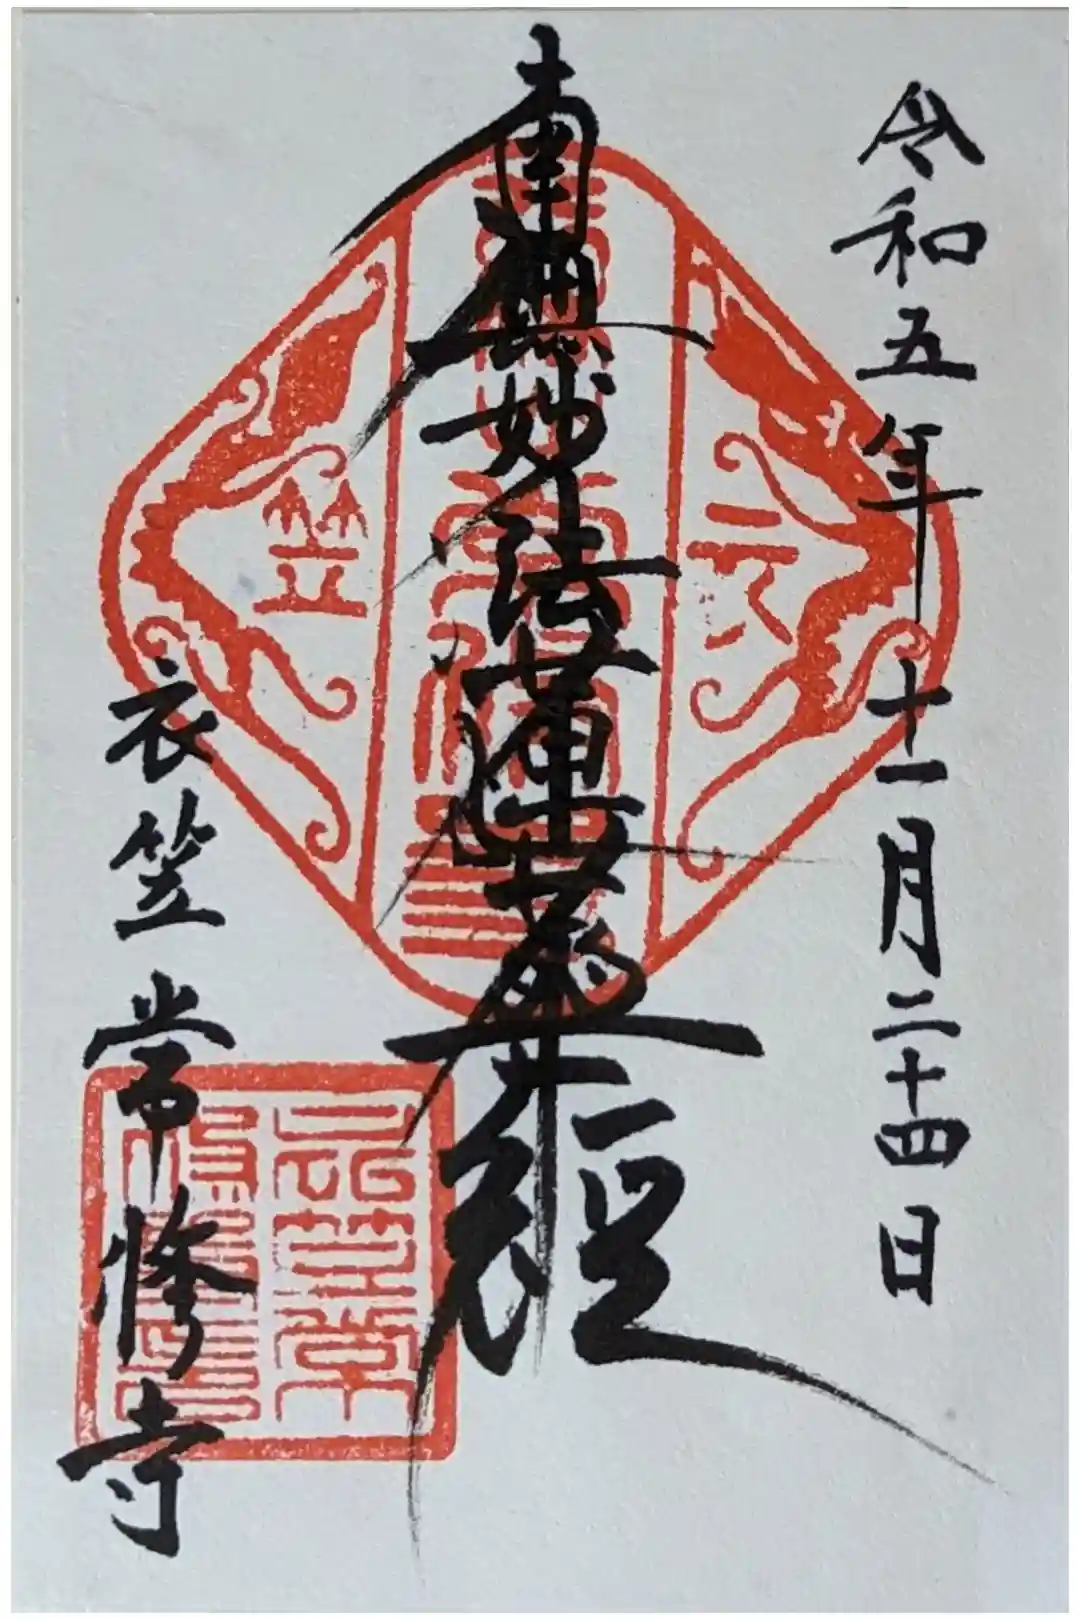 令和五年十一月二十四日
衣
南無妙法蓮華経
笠
衣笠常修寺